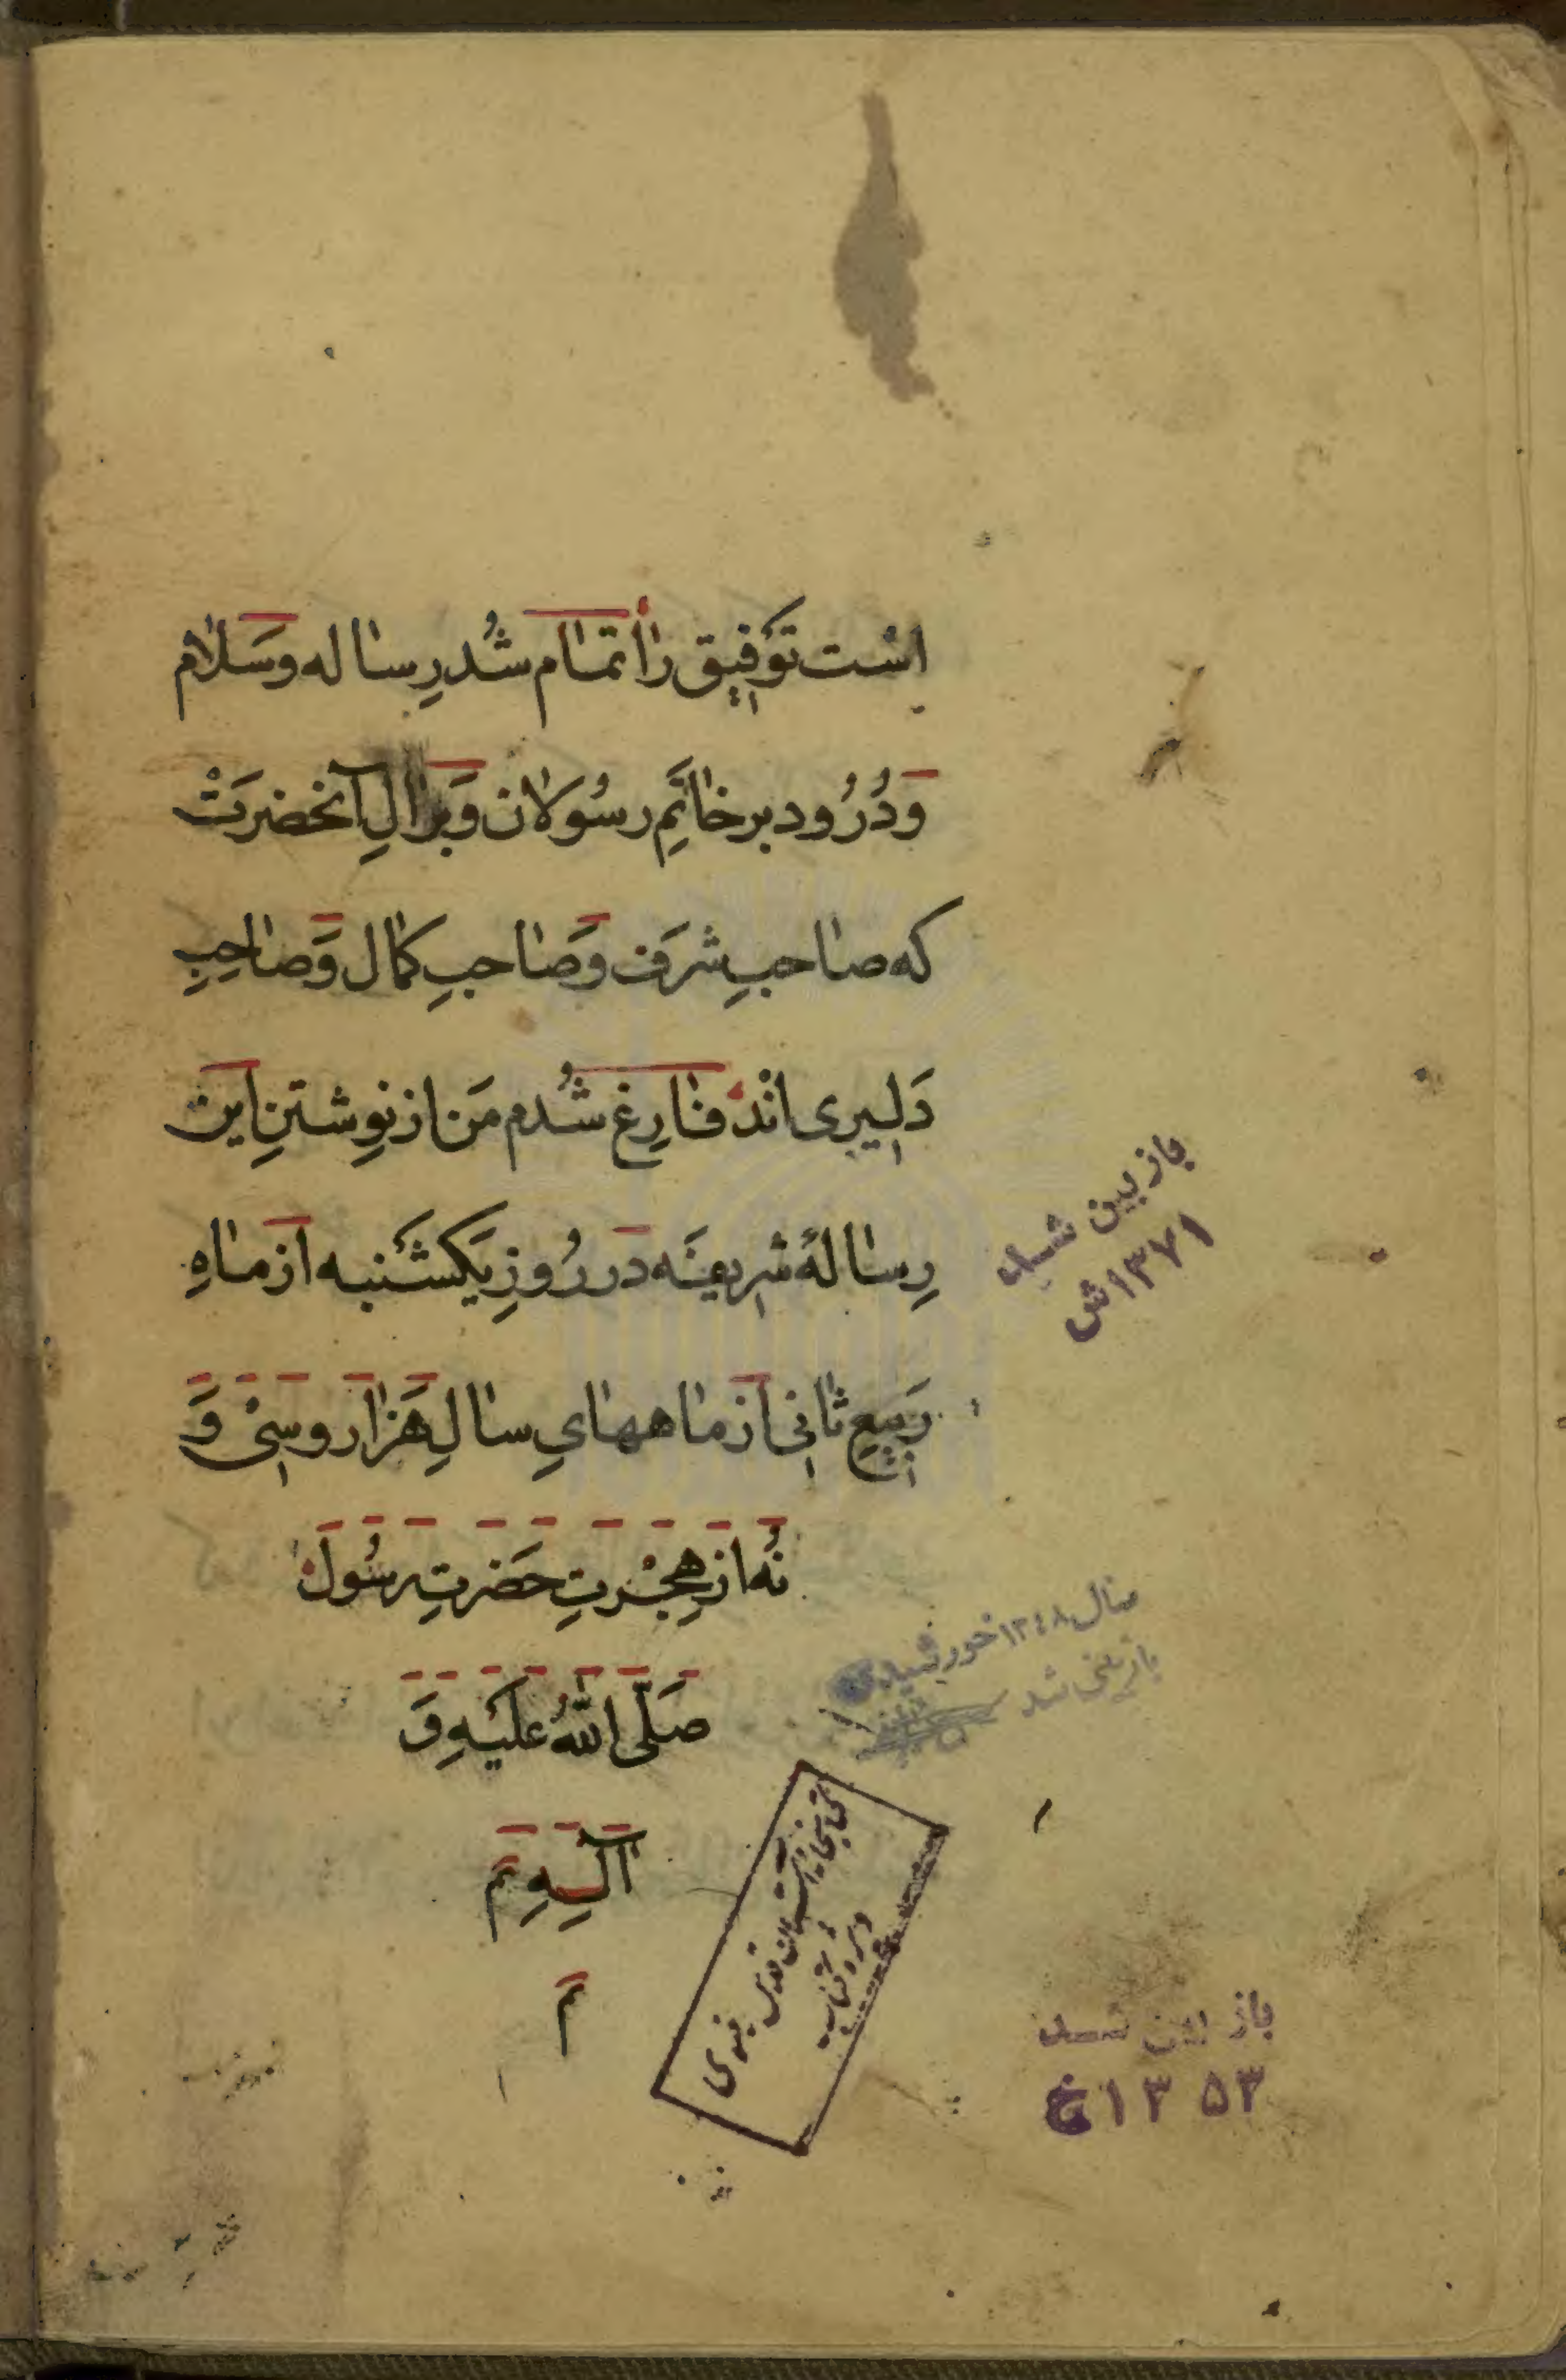 است تَوفیق را تمام شُد رِساله وَسَلام
وَدُرُود بر خاتَمِ رسُولان وَبَر الِ آنحضرَتْ
که صاحبِ شرَف وَصاحبِ کمال وَصاحِبِ
دَلیری اندْ فارِغ شُدم مَن از نوِشتنِ این
رِسالهٔ شریفه در رُوزِ یَکشَنبه از ماهِ
رَبیعِ ثانی از ماههایِ سالِ هَزار و سی وَ
نُه از هِجْرتِ حَضرتِ رسُول
صَلَّی اللهُ عَلَیهِ وَ
آلِهِ تم
م
باز بین شد
۱۳۷۱ش
سال ۱۳٤۸ خورشیدی
بازبینی شد
کتابخانه آستان قدس رضوی
باز بین شد
۱۳۵۳خ